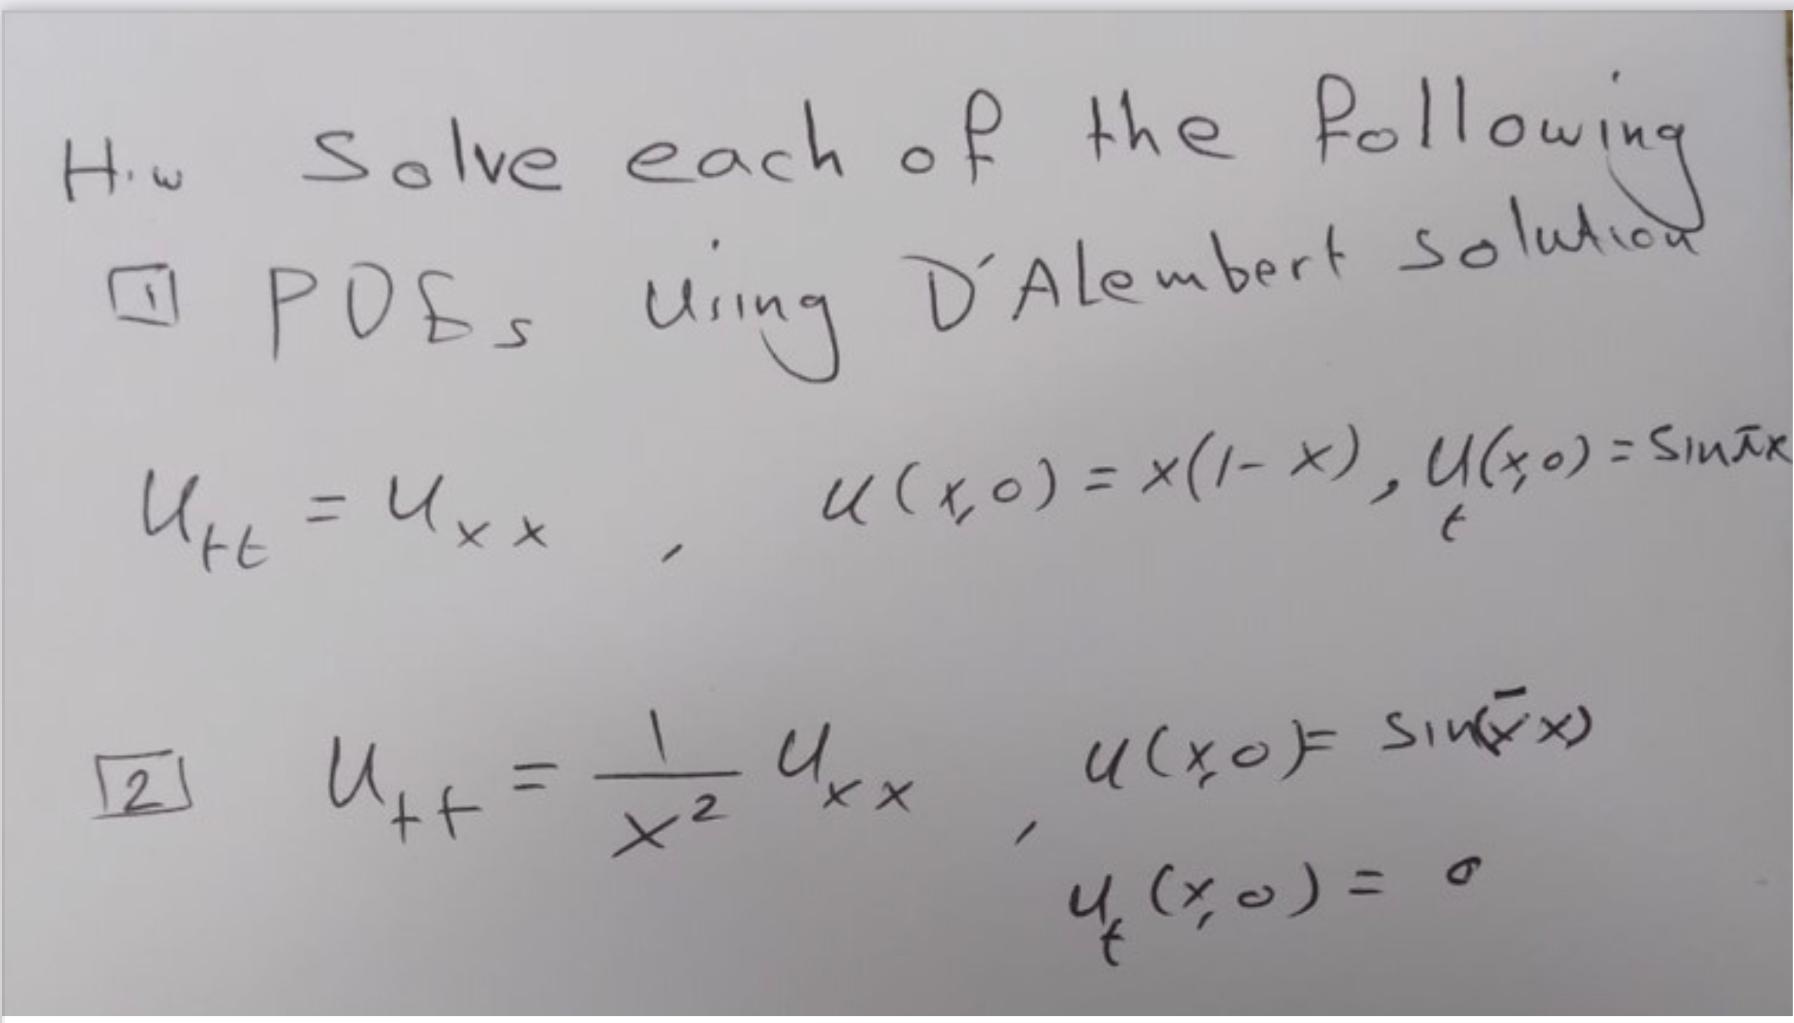 H.w Solve each of the following
[1] PDEs Using D'Alembert solution
U_tt = U_xx , u(x,0) = x(1-x), U_t(x,0) = Sin πx
[2] U_tt = 1/x² U_xx , u(x,0) = Sin(πx)
U_t(x,0) = 0